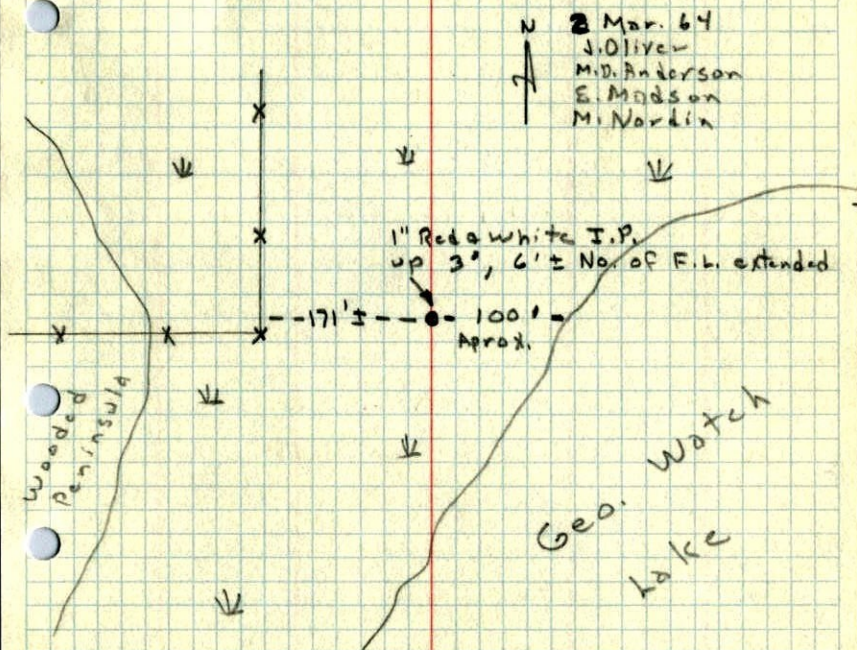 N
2 Mar. 64
J. Oliver
M.D. Anderson
E. Madson
M. Nordin
1" Red & White I.P.
up 3", 6'± No. of F.L. extended
171'±
100'
Aprox.
Wooded
Peninsula
Geo. Watch
Lake